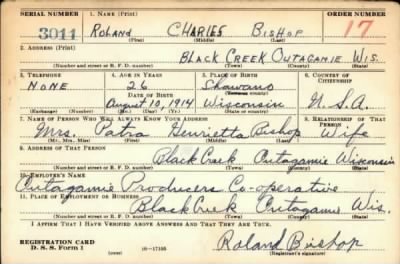 SERIAL NUMBER 1. NAME (Print) ORDER NUMBER
3011 ROLAND CHARLES BISHOP 17
(First) (Middle) (Last)
2. ADDRESS (Print)
BLACK CREEK OUTAGAMIE WIS.
(Number and street or R. F. D. number) (Town) (County) (State)
3. TELEPHONE 4. AGE IN YEARS 5. PLACE OF BIRTH 6. COUNTRY OF CITIZENSHIP
NONE 26 Shawano
DATE OF BIRTH (Town or county)
August 10, 1914 Wisconsin U.S.A.
(Exchange) (Number) (Mo.) (Day) (Yr.) (State or country)
7. NAME OF PERSON WHO WILL ALWAYS KNOW YOUR ADDRESS 8. RELATIONSHIP OF THAT PERSON
Mrs. Patra Henrietta Bishop Wife
(Mr., Mrs., Miss) (First) (Middle) (Last)
9. ADDRESS OF THAT PERSON
Black Creek Outagamie Wisconsin
(Number and street or R. F. D. number) (Town) (County) (State)
10. EMPLOYER'S NAME
Outagamie Producers Co-operative
11. PLACE OF EMPLOYMENT OR BUSINESS
Black Creek Outagamie Wis.
(Number and street or R. F. D. number) (Town) (County) (State)
I AFFIRM THAT I HAVE VERIFIED ABOVE ANSWERS AND THAT THEY ARE TRUE.
REGISTRATION CARD
D. S. S. Form 1 16-17105 Roland Bishop
(Registrant's signature)